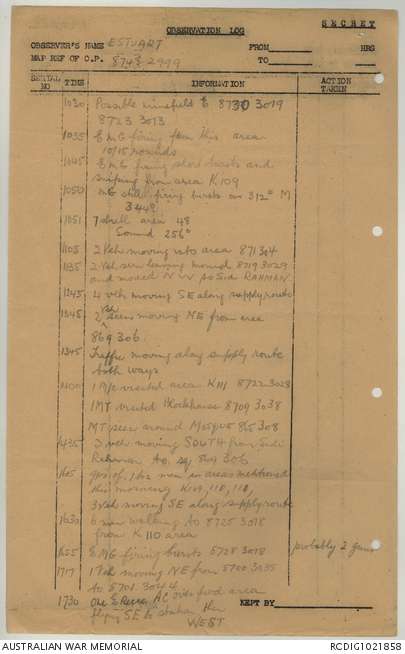 SECRET
OBSERVATION LOG
OBSERVER'S NAME ESTUART FROM HRS
MAP REF OF O.P. 8743 2999 TO
SERIAL NO TIME INFORMATION ACTION TAKEN
1030 Possible minefield E 8730 3019
8723 3013
1035 E MG firing from this area
10/15 rounds
1045 E MG firing short bursts and
sniping from area K109
1050 MG still firing bursts on 312° M
3448
1051 7 shell area 48
Sound 256°
1105 2 Veh moving into area 871304
1135 2 Veh seen leaving mound 8719 3029
and moved NW to Sidi RAHMAN
1245 4 veh moving SE along supply route
1345 2 Veh seen moving NE from area
869 306
1345 Traffic moving along supply route
both ways
1400 1 M/C visited area K111 8722 3028
1MT visited Blockhouse 8709 3038
MT seen around Mosque 865 308
1435 2 veh moving SOUTH from Sidi
Rahman to sq 864 306
1605 gps of 1 to 2 men in areas mentioned
this morning K109, 110, 111,
3 Veh moving SE along supply route
1630 6 men walking to 8725 3018
from K 110 area
1655 E MG firing bursts 8728 3018 probably 2 guns
1717 1 Veh moving NE from 8700 3035
to 8701 3044
1730 One E Recce AC over fwd area
flying SE to station then
WEST
KEPT BY
AUSTRALIAN WAR MEMORIAL
RCDIG1021858